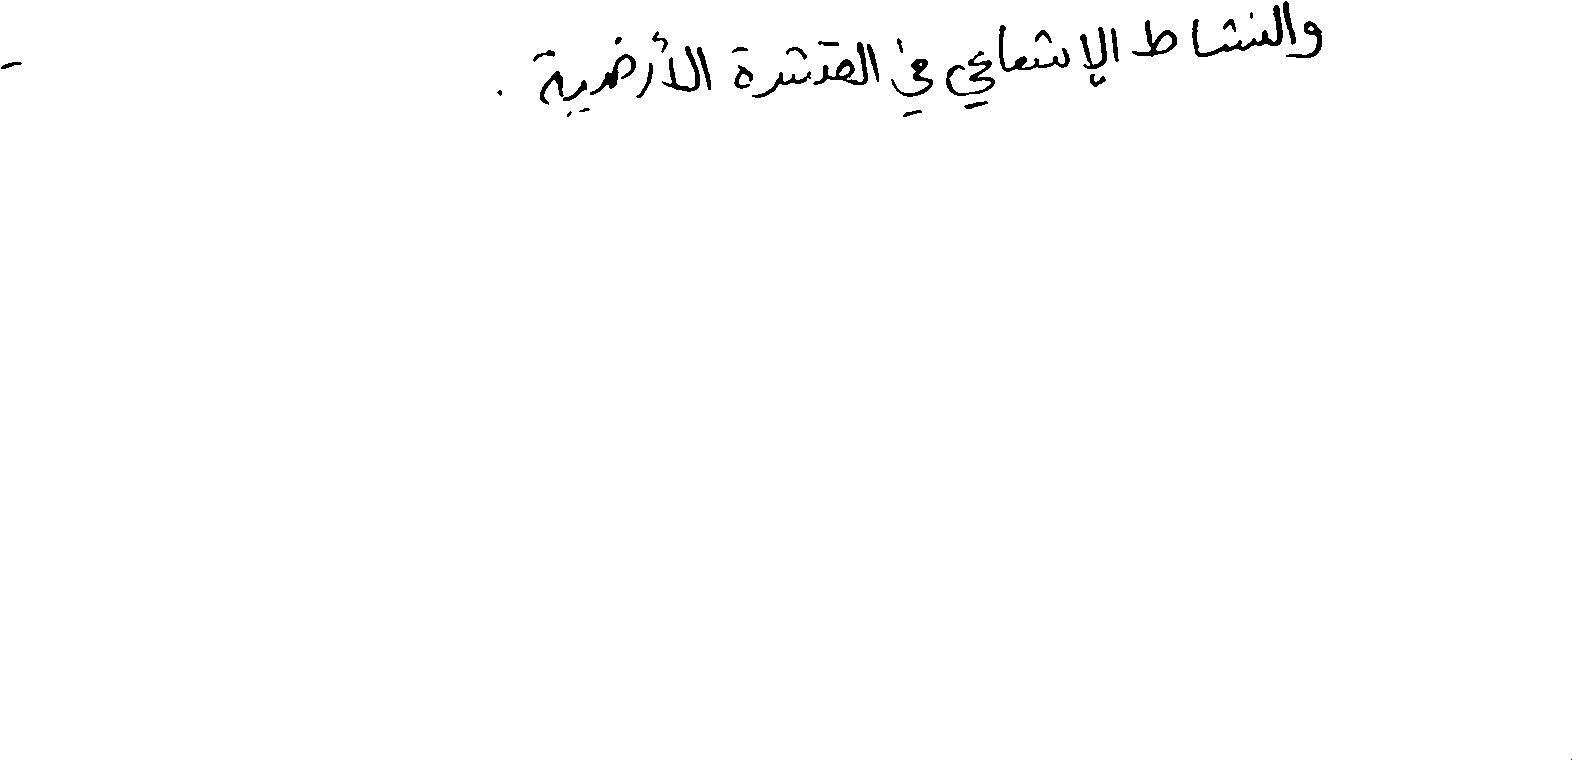 والنشاط الإشعاعي في القشرة الأرضية .